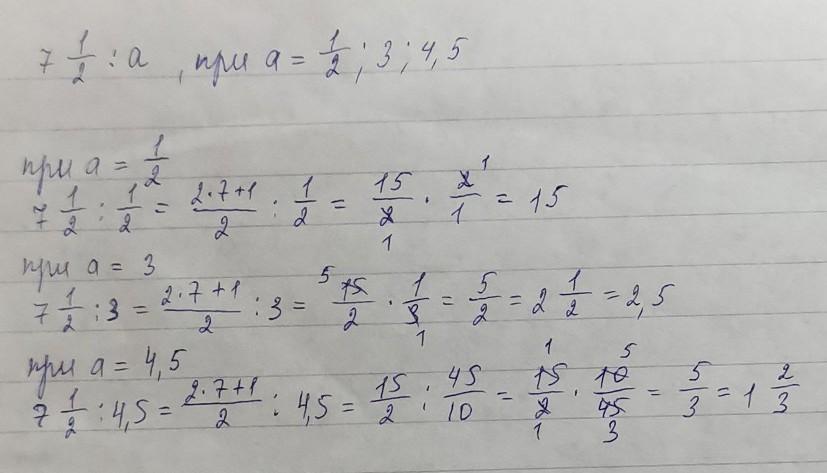 7 1/2 : a , при a = 1/2 ; 3 ; 4,5
при a = 1/2
7 1/2 : 1/2 = (2·7+1)/2 : 1/2 = 15/2 · 2/1 = 15
при a = 3
7 1/2 : 3 = (2·7+1)/2 : 3 = 15/2 · 1/3 = 5/2 = 2 1/2 = 2,5
при a = 4,5
7 1/2 : 4,5 = (2·7+1)/2 : 4,5 = 15/2 : 45/10 = 15/2 · 10/45 = 5/3 = 1 2/3